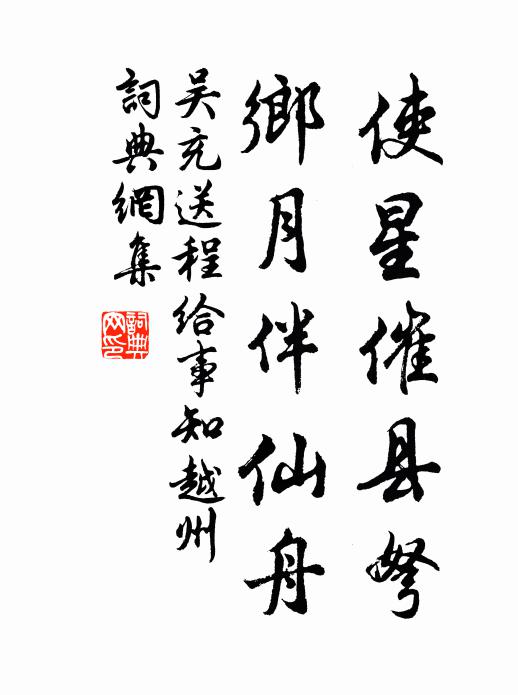 使星催县弩
鄉月伴仙舟
吴充送程给事知越州
詞典網集
詞典网印